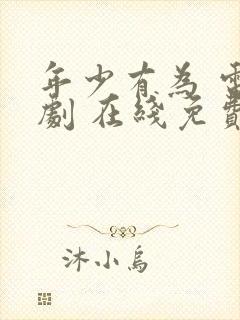 年少有為 電
劇 在綫免費
沐小烏